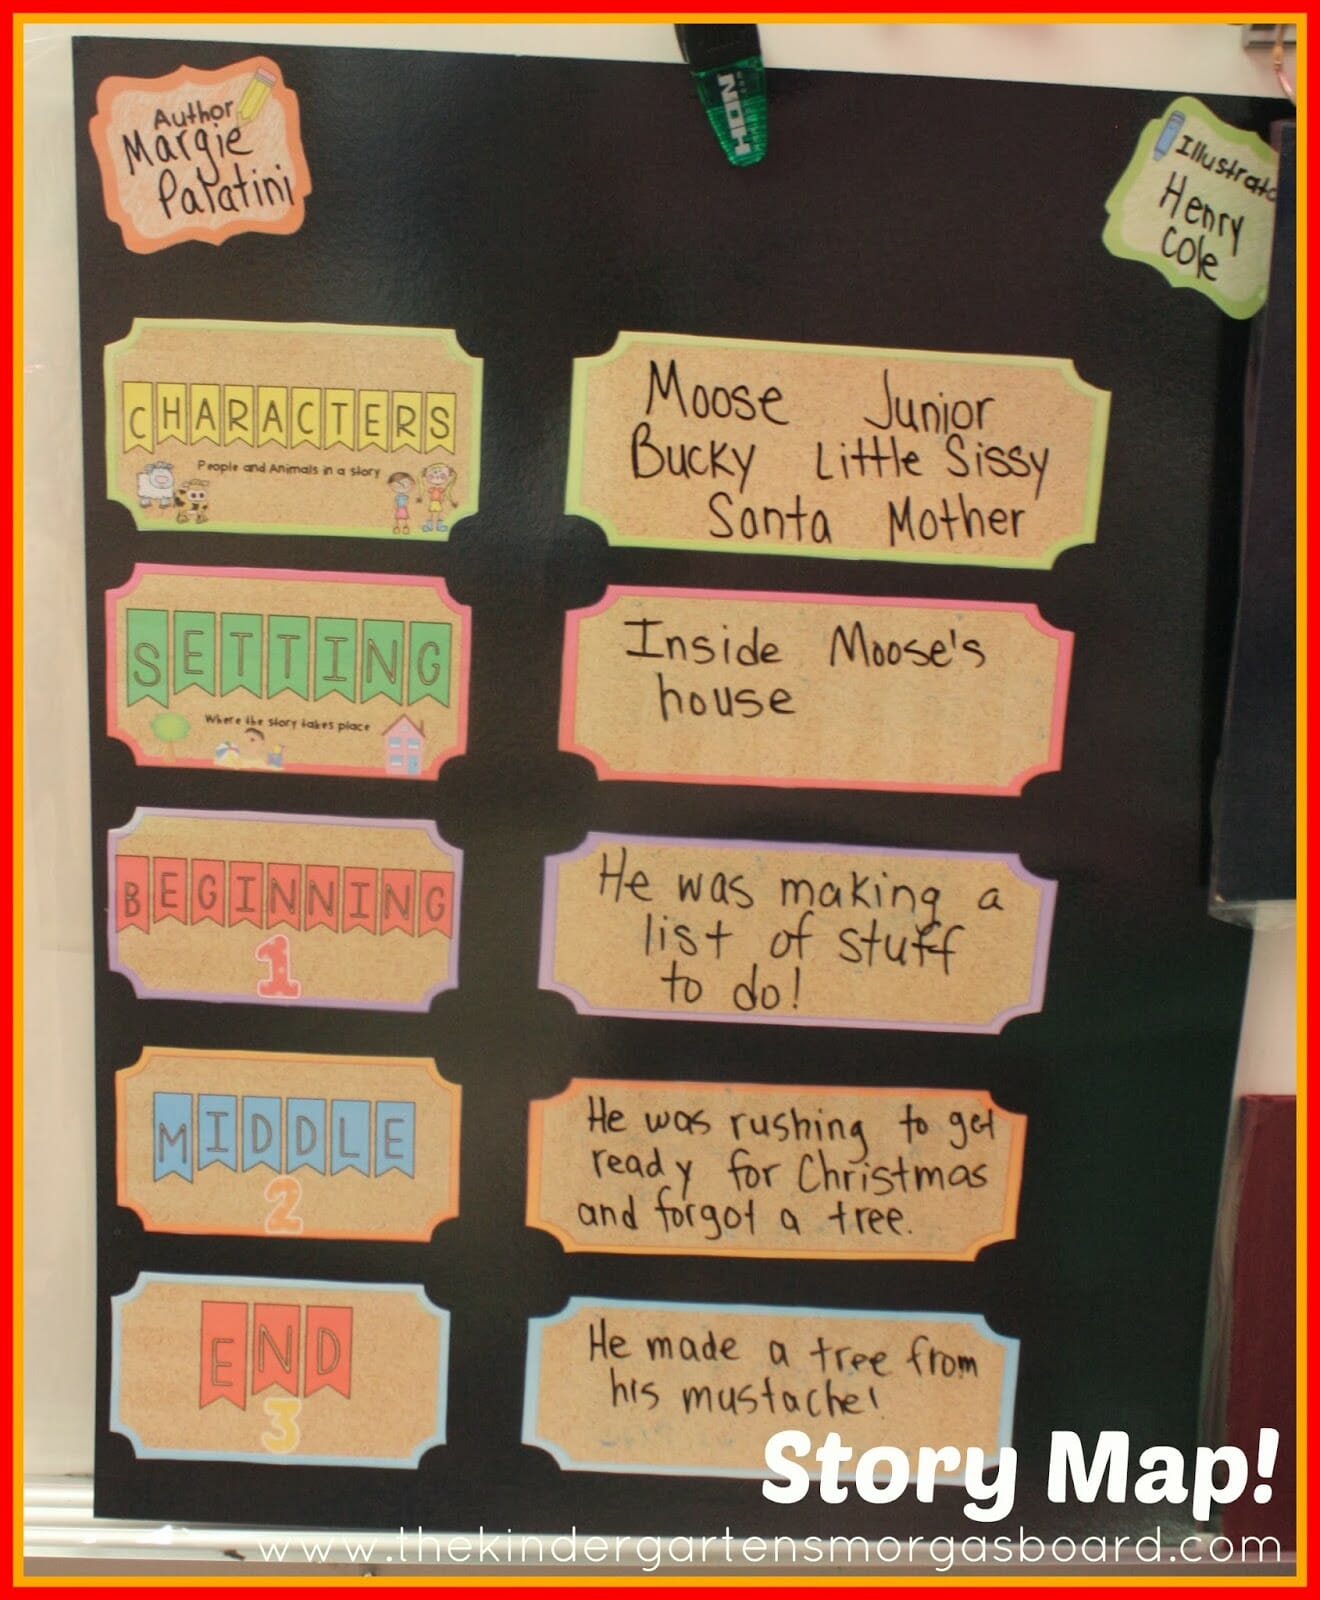 Author
Margie
Palatini
HON
Illustrato
Henry
Cole
CHARACTERS
People and Animals in a story
Moose Junior
Bucky Little Sissy
Santa Mother
SETTING
Where the story takes place
Inside Moose's
house
BEGINNING
1
He was making a
list of stuff
to do!
MIDDLE
2
He was rushing to get
ready for Christmas
and forgot a tree.
END
3
He made a tree from
his mustache!
Story Map!
www.thekindergartensmorgasboard.com